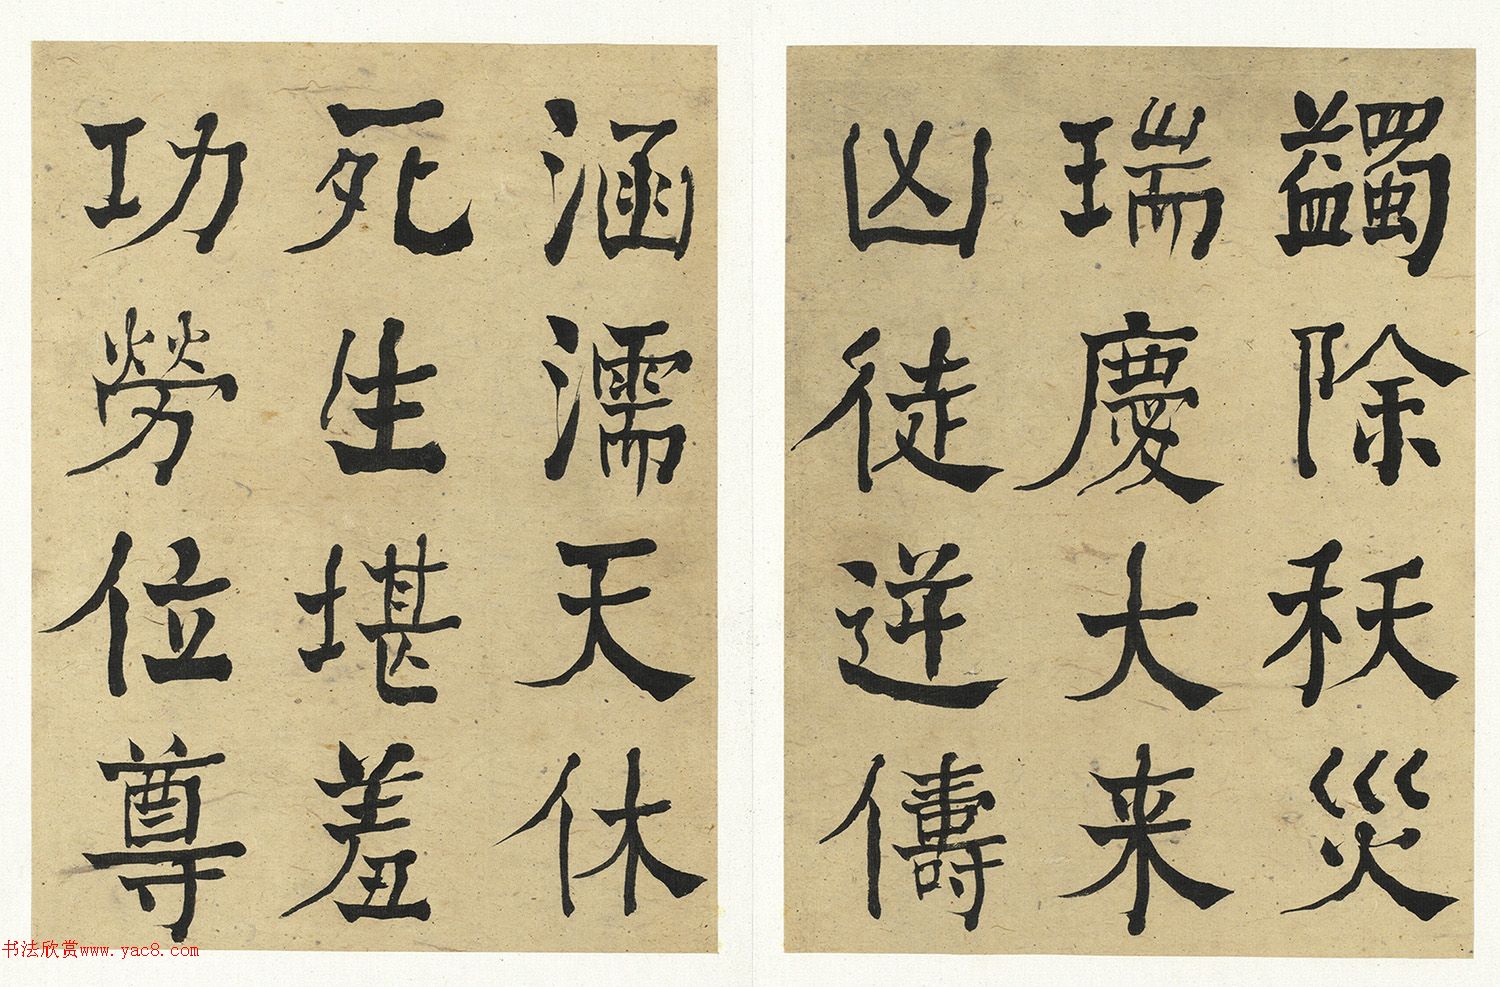 蠲除秡災
瑞慶大来
凶徒逆儔
涵濡天休
死生堪羞
功勞位尊
书法欣赏www.yac8.com